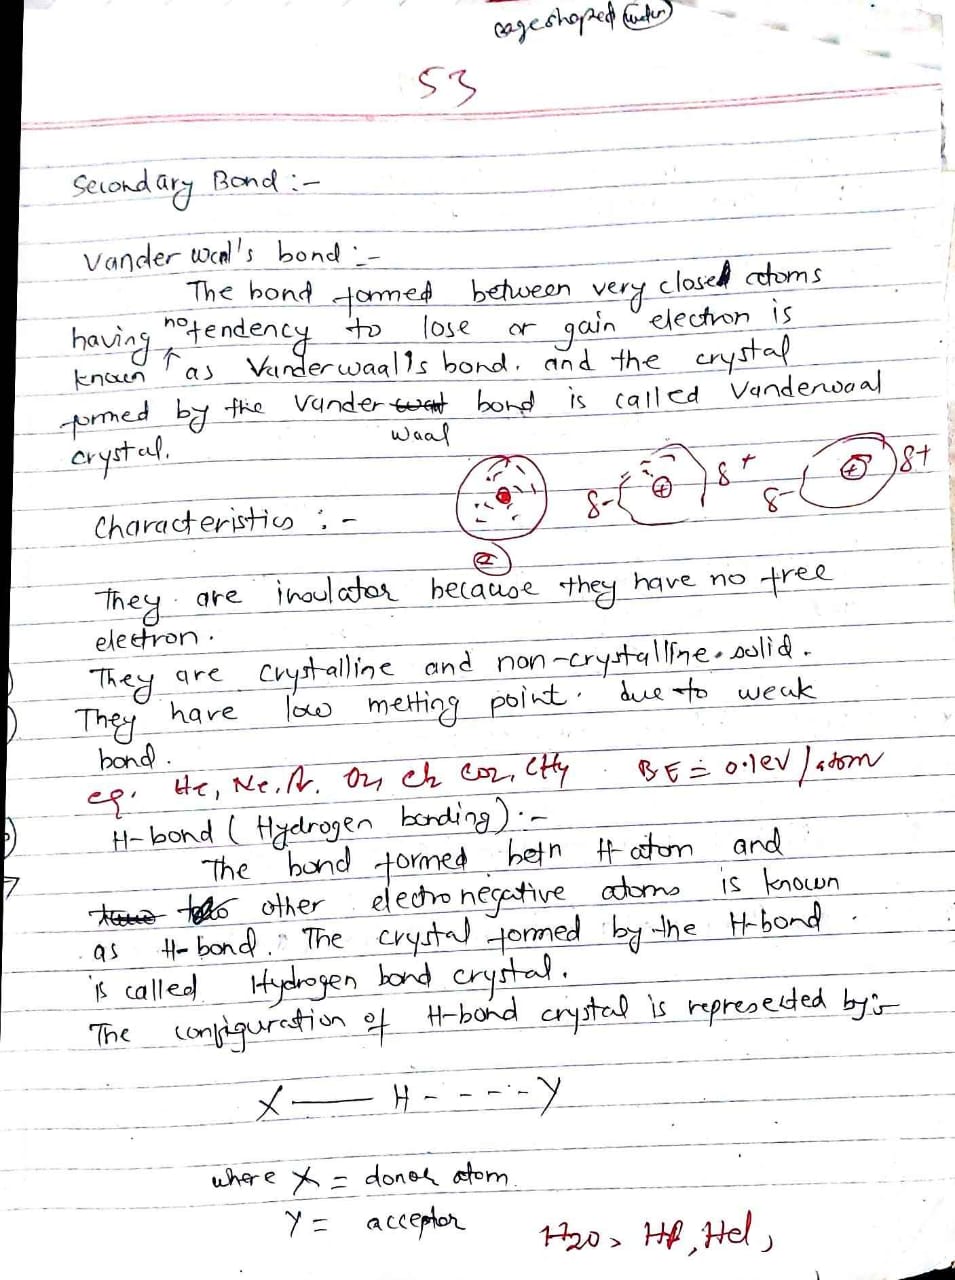 cageshaped
53
Secondary Bond :-
Vander waal's bond :-
The bond formed between very closed atoms
having no tendency to lose or gain electron is
known as Vanderwaal's bond. and the crystal
formed by the Vander waal bond is called Vanderwaal
crystal.
δ- δ+ δ- δ+
Characteristics :-
They are insulator because they have no free
electron.
They are crystalline and non-crystalline solid.
They have low melting point. due to weak
bond.
eg. He, Ne, Ar, O2, Cl2 CO2, CH4 BE = 0.1eV/atom
H-bond (Hydrogen bonding) :-
The bond formed betn H-atom and
other electronegative atoms is known
as H-bond. The crystal formed by the H-bond
is called Hydrogen bond crystal.
The configuration of H-bond crystal is represected by:-
X —— H - - - - - Y
where X = donor atom.
Y = acceptor
H2O, HF, Hcl,